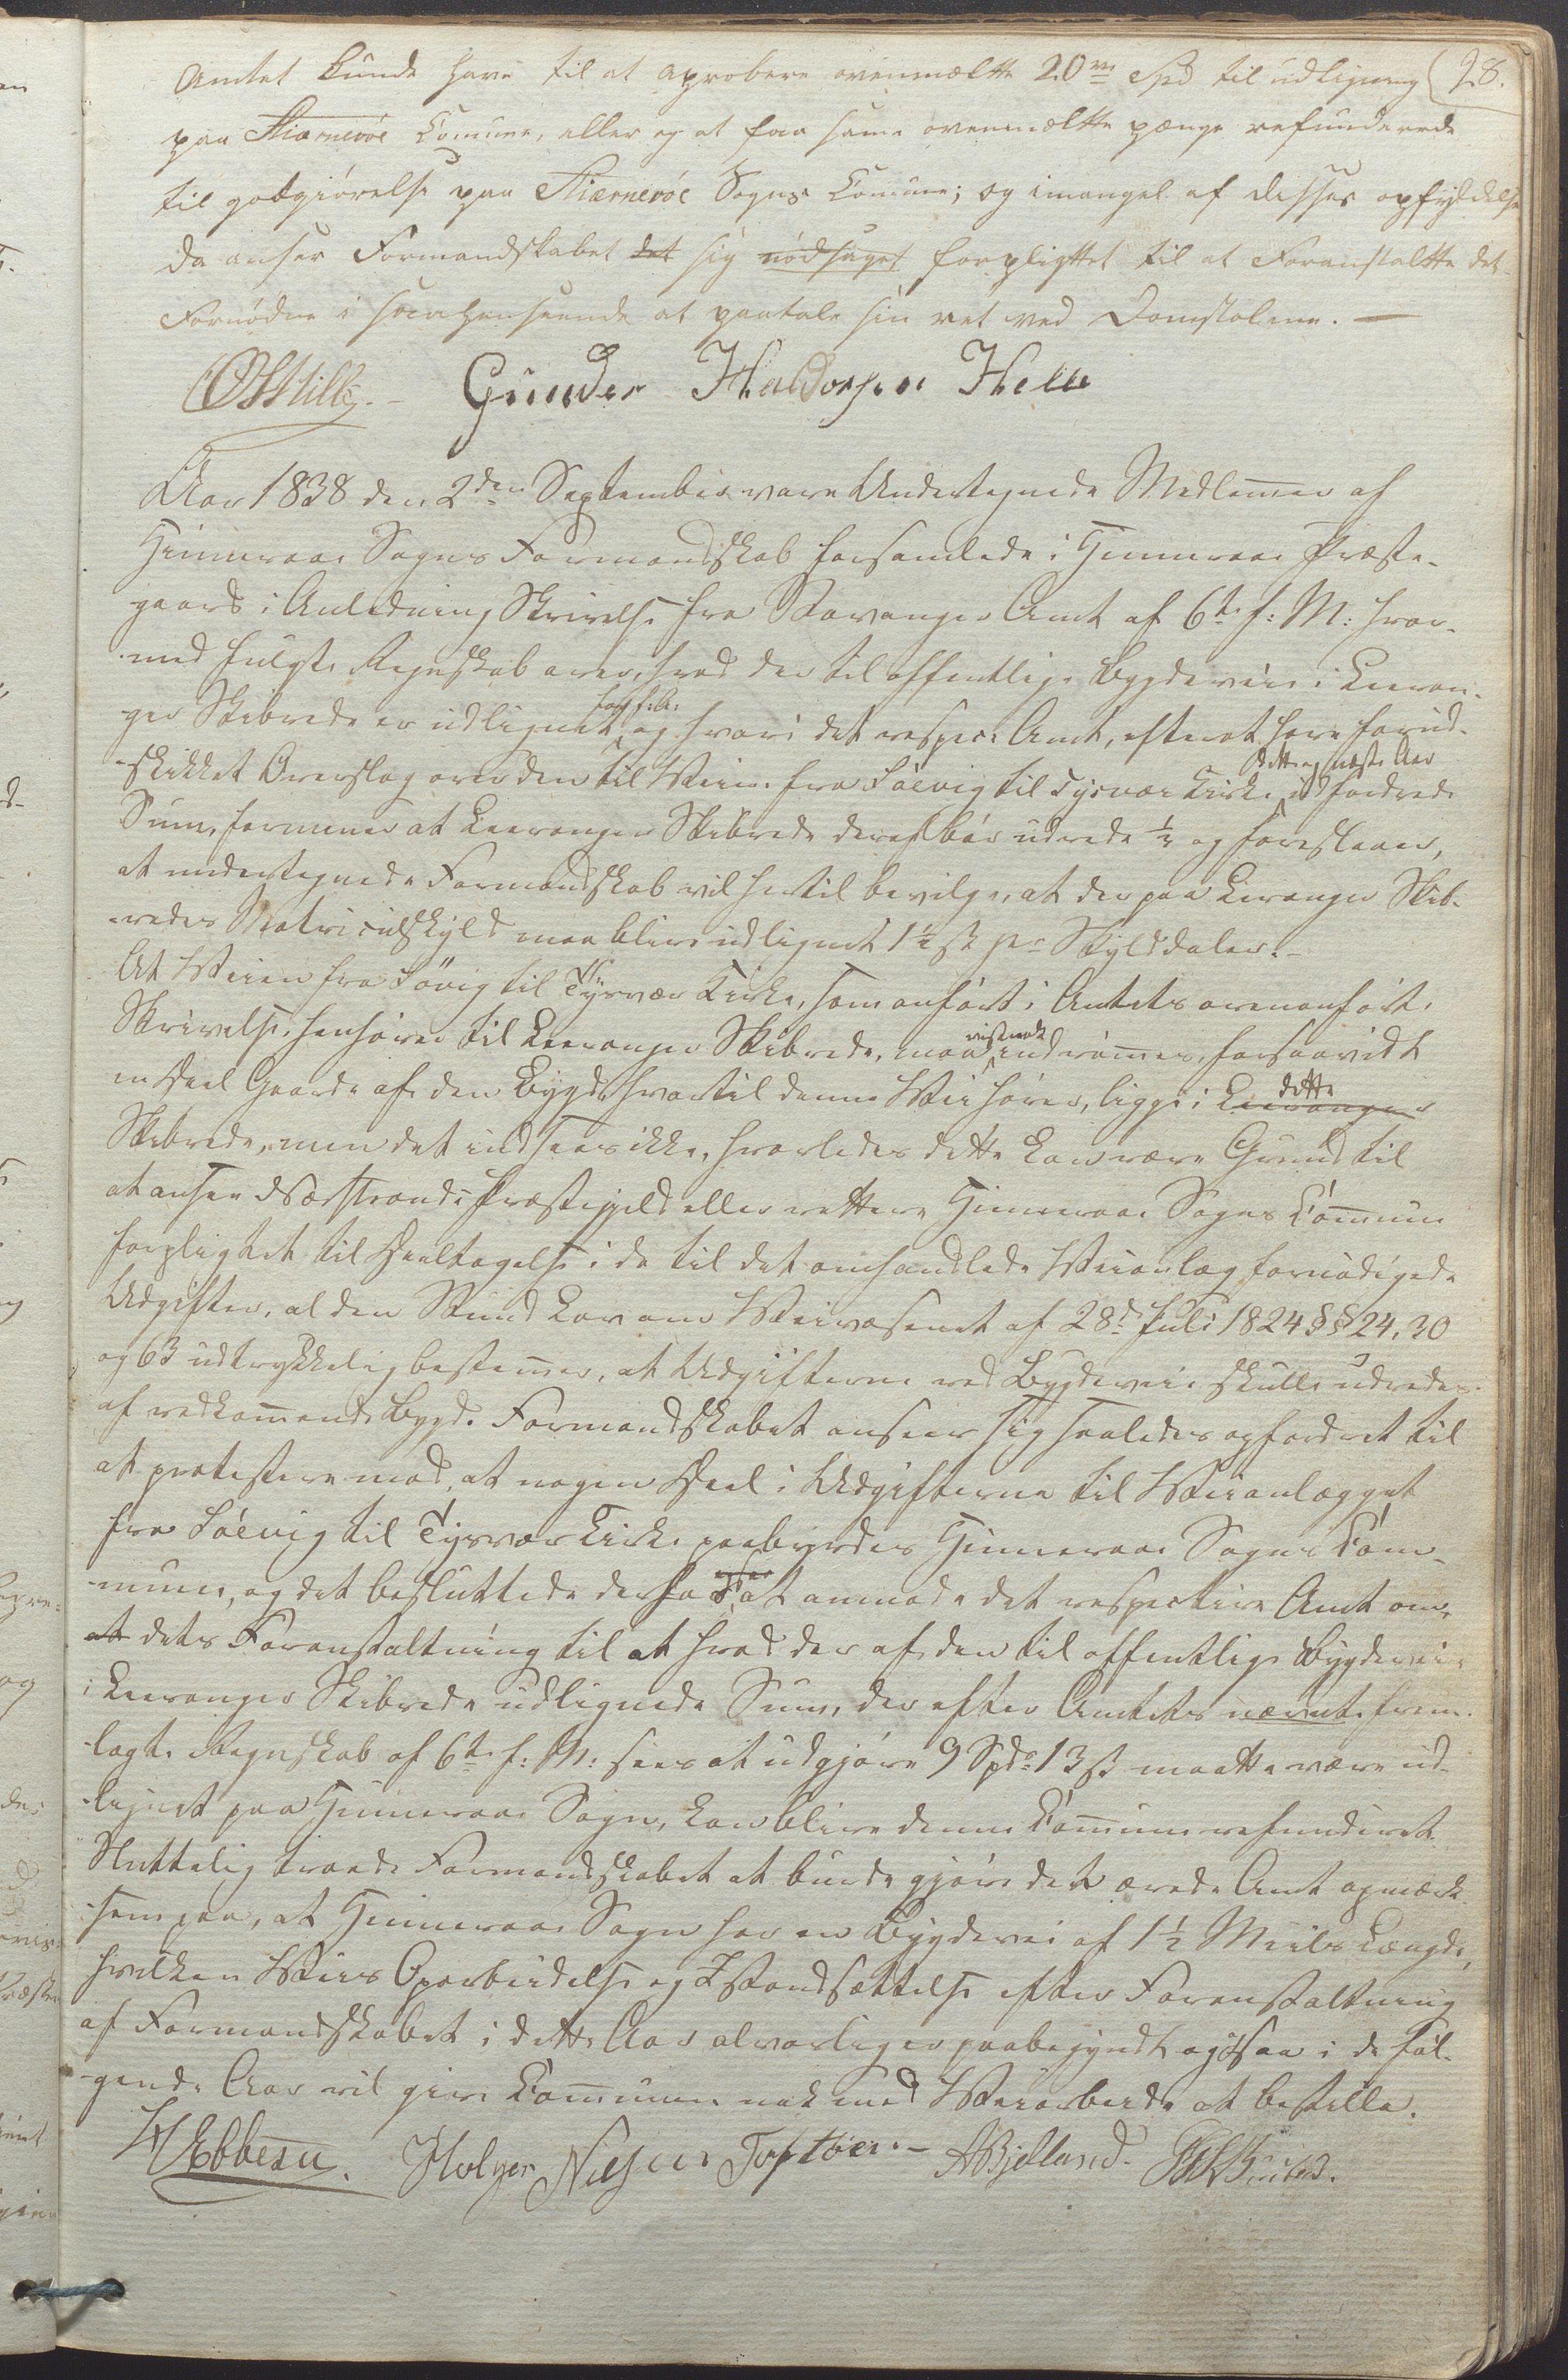 28.
Amtet kunde have til at aprobere ovenmeldte 20ve Spd til udligning
paa Stiærnerøe Comune, eller og at faa same ovenmeldte penge refunderede
til godgiørelse paa Stiærnerøe Sogns Comune; og i mangel af disses opfyldelse
da anser Formandskabet det sig nødsaget forpligttet til at Foranstaltte det
Fornødne i saa henseende at paatale sin ret ved Domstolene. —
Gunder Haldorsen Helle
Aar 1838 den 2den September vare Undertegnede Medlemer af
Hinneraae Sogns Formandskab forsamlede i Hinneraae Præste-
gaard i Anledning Skrivelse fra Stavanger Amt af 6te f: M: hvor-
med fulgte Regnskab over, hvad der til offentlige Bygdeveie i Leeran-
ger Skibrede er udlignet for f. A. og hvori det respec. Amt, efterat have forud-
skikket Overslag over den til Veien fra Søevig til Tysvær Kirke dette og næste Aar udfordrede
Sum, formener at Leeranger Skibrede deraf bør udrede ½ og foreslaaer,
at undertegnede Formandskab vil hertil bevilge, at der paa Leeranger Skib-
redes Matriculskyld maa blive udlignet 1½ ß pr Skylddaler. -
At Veien fra Søvig til Tysvær Kirke, som anført i Amtets ovenanførte
Skrivelse, henhører til Leeranger Skibrede, maa vistnok indrømmes, forsaavidt
en Deel Gaarde af den Bygd, hvortil denne Vei hører, ligge i Leeranger dette
Skibrede, men det indsees ikke, hvorledes dette kan være Grund til
at ansee Nærstrands Præstegjeld eller rettere Hinneraae Sogns Commune
forpligtet til Deeltagelse i de til det omhandlede Veianlæg fornødigede
Udgifter, al den Stund Lov om Veivæsenet af 28de Juli 1824 §§ 24, 30
og 63 udtrykkelig bestemmer, at Udgifterne ved Bygdeveie skulle udredes
af vedkommende Bygd. Formandskabet anseer sig saaledes opfordret til
at protestere mod, at nogen Deel i Udgifterne til Veianlægget
fra Søevig til Tysvær Kirke paabyrdes Hinneraae Sogns Com-
mune, og det besluttede derhos, at anmode det respective Amt om,
at dets Foranstaltning til at hvad der af den til offentlige Bygdeveie
i Leeranger Skibrede udlignede Sum, der efter Amtets nævnte frem-
lagte Regnskab af 6te f: M: sees at udgjøre 9 Spd 13 ß maatte være ud-
lignet paa Hinneraae Sogn, kan blive denne Commune refunderet.
Sluttelig troede Formandskabet at burde gjøre det ærede Amt opmærk-
som paa, at Hinneraae Sogn har en Bygdevei af 1½ Miils Længde,
hvilken Veis Oparbeidelse og Istandsættelse efter Foranstaltning
af Formandskabet i dette Aar alvorligen paabegyndt ogsaa i de føl-
gende Aar vil give Communen nok med Veiarbeide at bestille.
Ebbesen. Holger Nilsen Toftøen. - ABjelland.